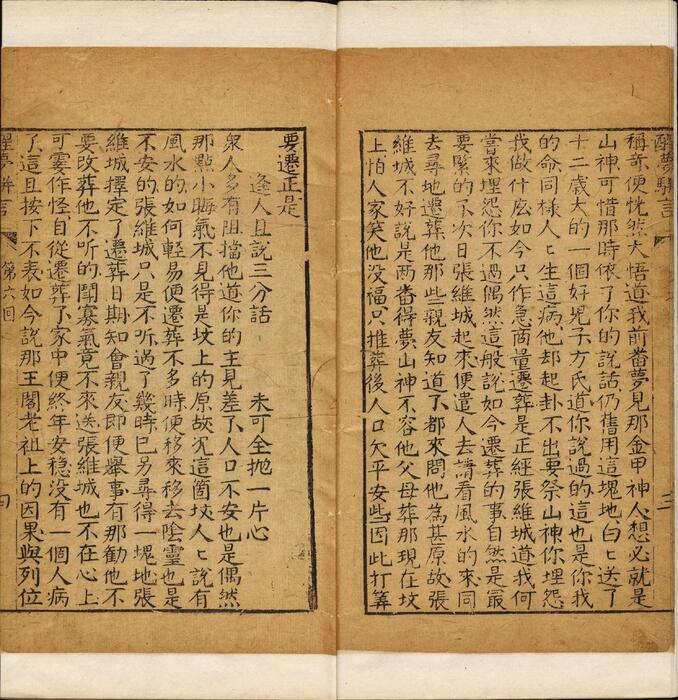 醒夢駢言
三
稱奇便恍然大悟道我前番夢見那金甲神人想必就是
山神可惜那時依了你的說話仍舊用這塊地白匕送了
十二歲大的一個好児子方氏道你說過的這也是你我
的命同樣人匕生這病他却起卦不出要祭山神你埋怨
我做什庅如今只作急商量遷葬是正經張維城道我何
當來埋怨你不過偶然這般說如今遷葬的事自然是最
要緊的了次日張維城起來便遣人去請看風水的來同
去尋地遷葬他那些親友知道了都來問他為甚原故張
維城不好說是兩番得夢山神不容他父母葬那現在坟
上怕人家笑他没福只推葬後人口欠平安些因此打筭
要遷正是
逢人且說三分話 未可全抛一片心
衆人多有阻擋他道你的主見差了人口不安也是偶然
那點小晦氣不見得是坟上的原故况這箇坟人匕說有
風水的如何輕易便遷葬不多時便移來移去陰靈也是
不安的張維城只是不听過了幾時已另尋得一塊地張
維城擇定了遷葬日期知會親友即便舉事有那勸他不
要改葬他不听的鬪寡氣竟不來送張維城也不在心上
可霎作怪自從遷葬了家中便終年安穩没有一個人病
了這且按下不表如今說那王閣老祖上的因果與列位
醒夢駢言 第六回 四